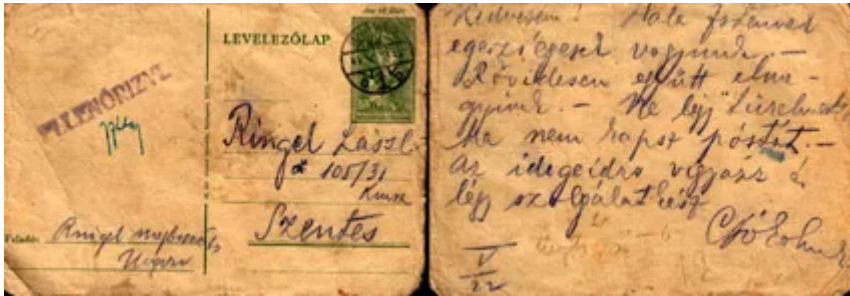 LEVELEZŐLAP
ELLENŐRIZVE
Ringel László
105/31
Szentes
Feladó: Ringel
Kedvesem! Hála Istennek
egészségesek vagyunk. —
Rövidesen együtt elme-
gyünk. — Ne légy türelmetlen
ha nem kapsz postát. —
Az idegeidre vigyázz és
légy szolgálatkész
Csókolunk
V
22